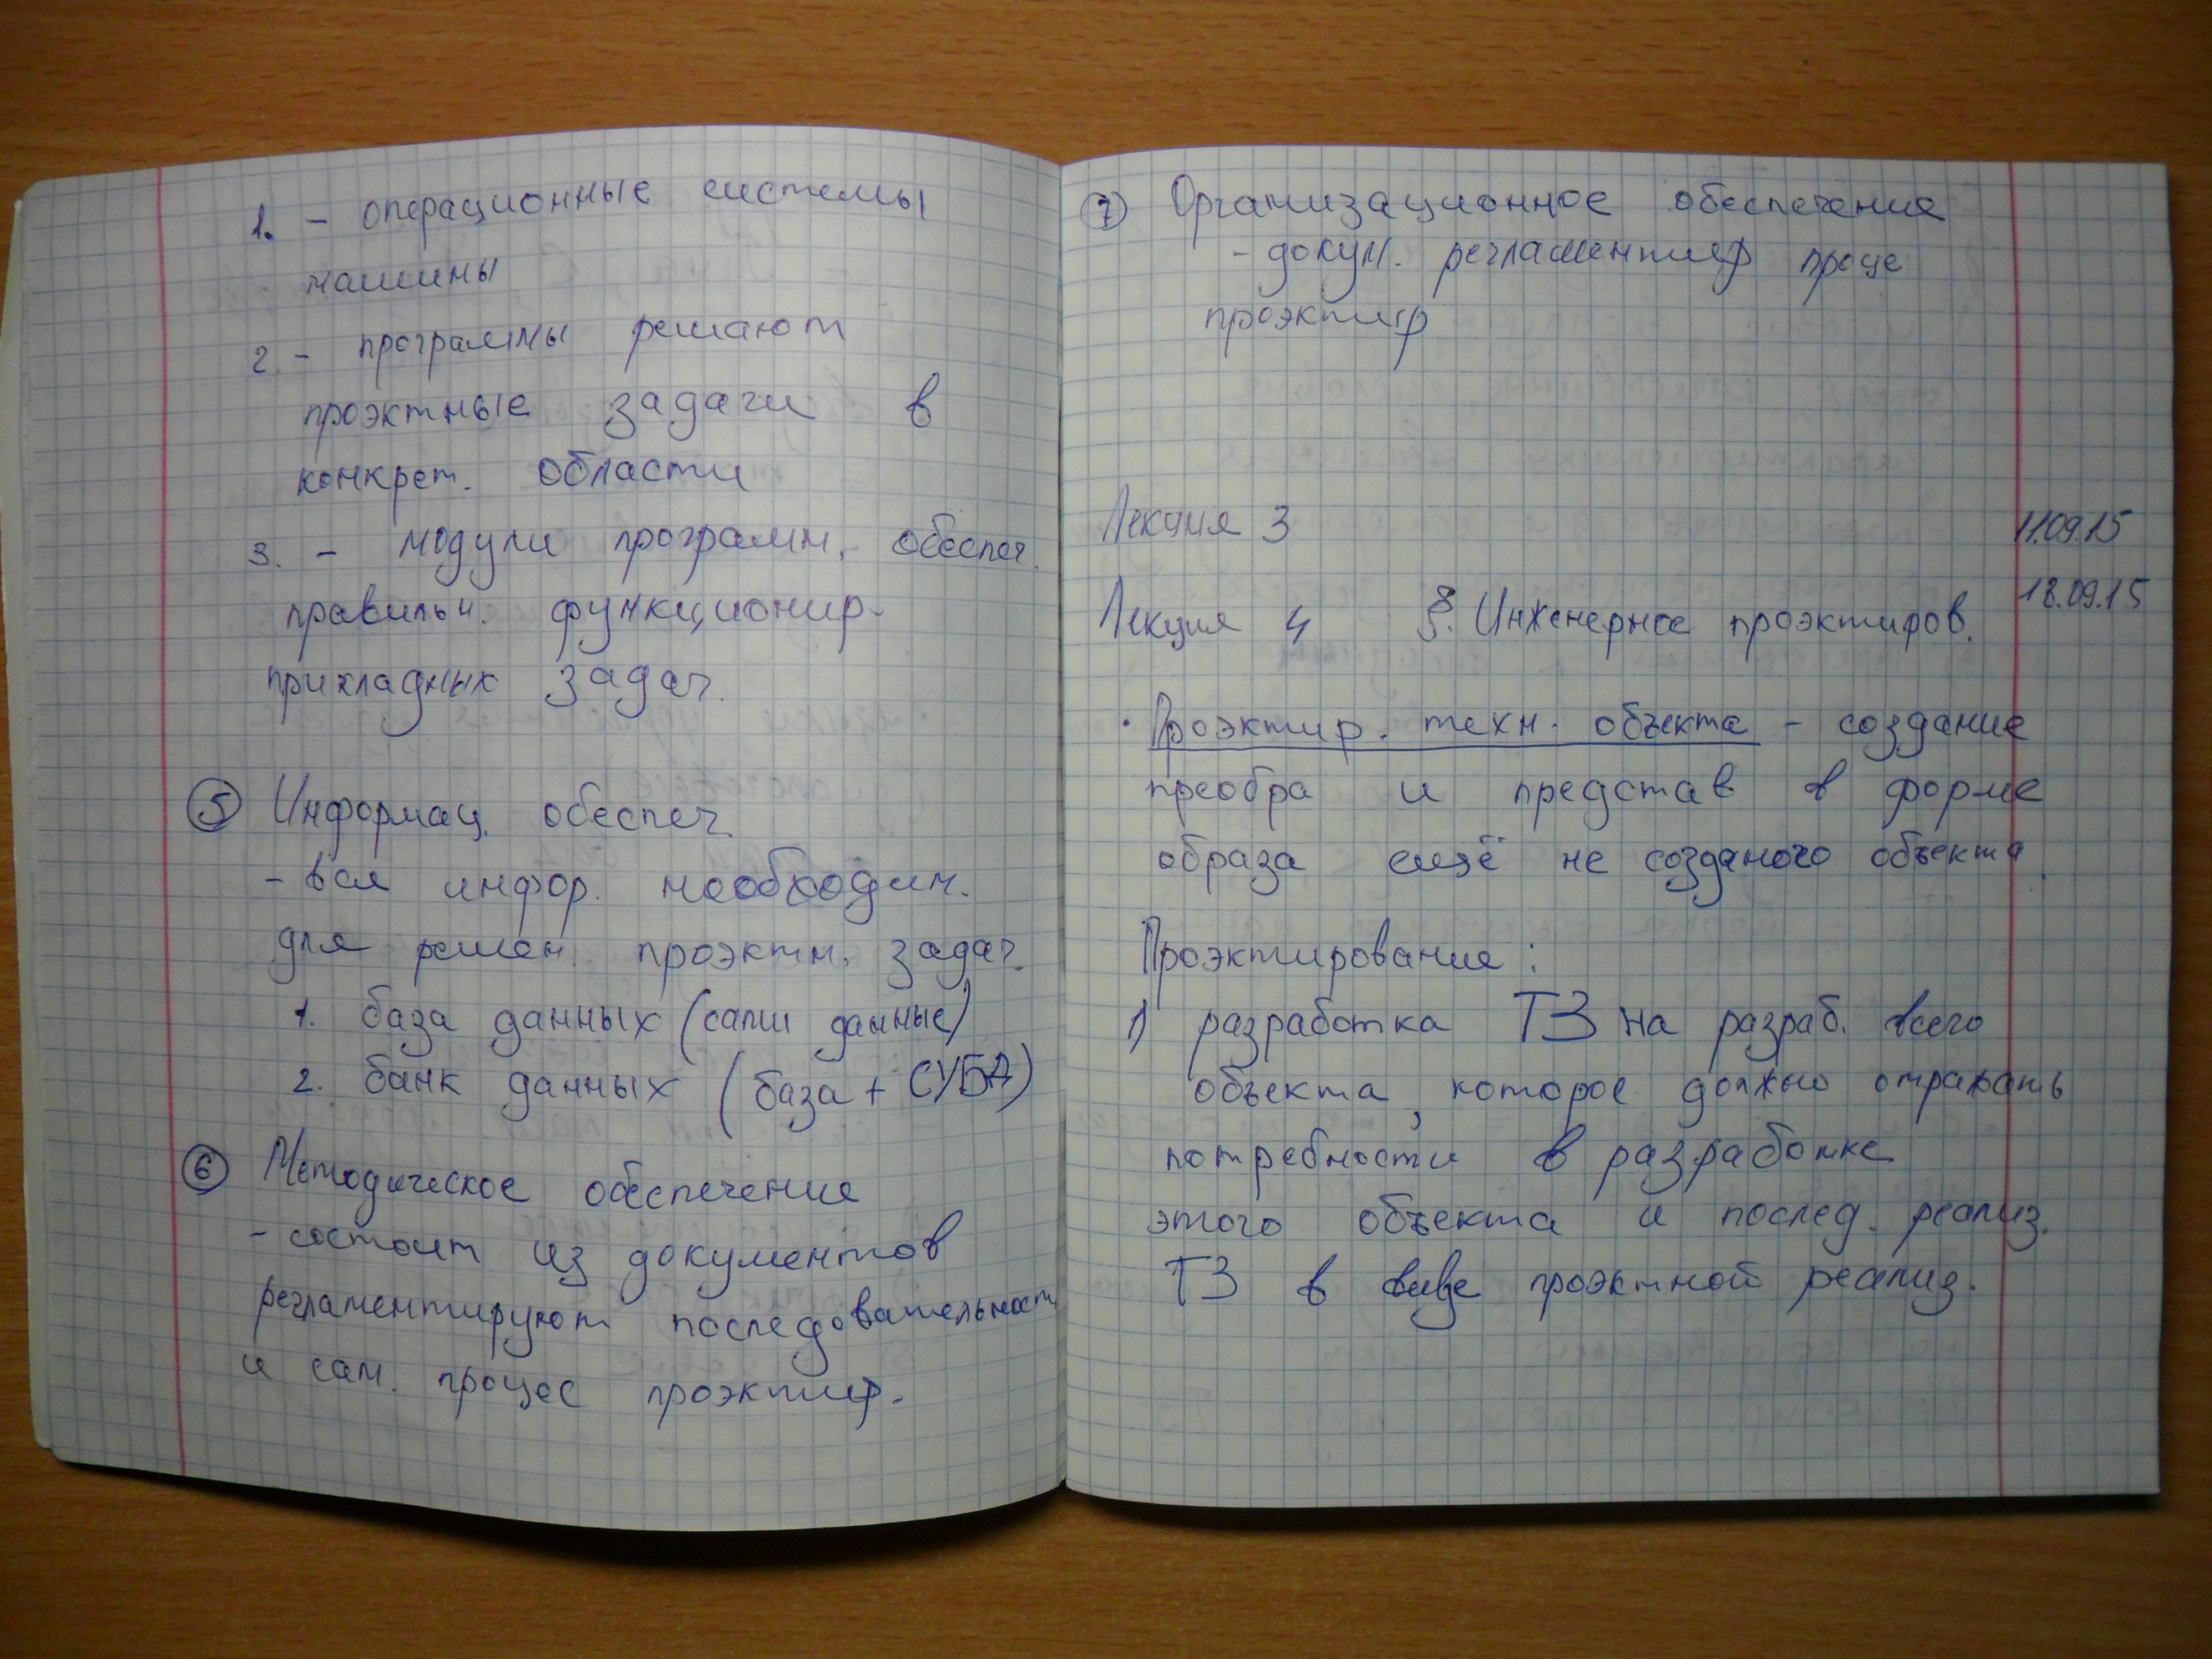 1. - операционные системы
машины
2. - программы решают
проэктные задачи в
конкрет. области
3. - модули программ, обеспеч.
правильн. функционир-
прикладных задач.
⑤ Информац. обеспеч.
- вся инфор. необходим.
для решен. проэктн. задач.
1. база данных (сами данные)
2. банк данных (база + СУБД)
⑥ Методическое обеспечение
- состоит из документов
регламентируют последовательность
и сам. процес проэктир.
⑦ Организационное обеспечение
- докум. регламентир проце
проэктир
Лекция 3 11.09.15
Лекция 4 §. Инженерное проэктиров. 18.09.15
· Проэктир. техн. объекта - создание
преобра и представ в форме
образа ещё не созданого объекта
Проэктирование:
1) разработка ТЗ на разраб. всего
объекта, которое должно отражать
потребности в разработке
этого объекта и послед. реализ.
ТЗ в виде проэктной реализ.